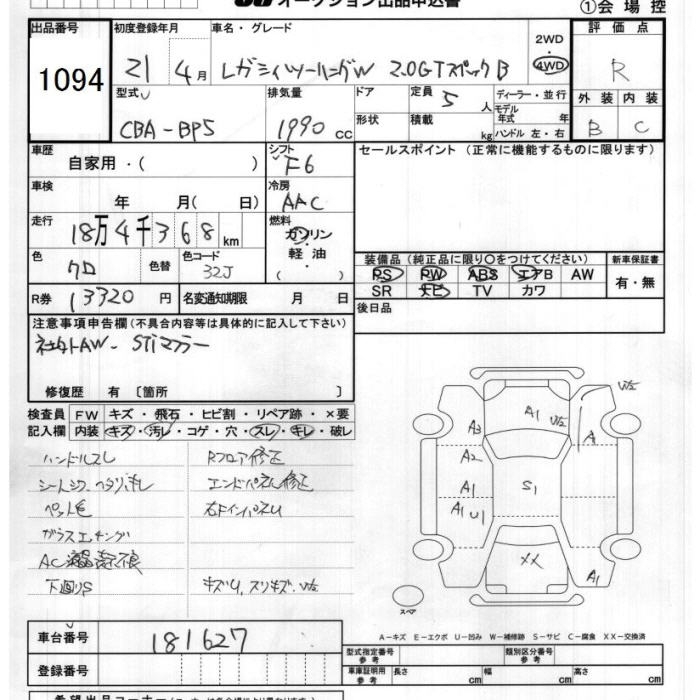 オークション出品申込書
①会場控
出品番号
1094
初度登録年月
21 4月
車名・グレード
レガシィツーリングW 2.0GTスペックB
2WD
4WD
評価点
R
外装 内装
B C
型式
CBA-BP5
排気量
1990 cc
ドア
形状
定員 5 人
積載 kg
ディーラー・並行
モデル
年式 年
ハンドル 左・右
車歴
自家用・( )
シフト
F6
セールスポイント (正常に機能するものに限ります)
車検
年 月( 日)
冷房
AAC
走行
18万4千368km
燃料
ガソリン
軽油
( )
色
クロ
色替
色コード
32J
装備品 (純正品に限り○をつけてください)
PS PW ABS エアB AW
SR ナビ TV カワ
新車保証書
有・無
R券
13320円
名変通知期限 月 日
後日品
注意事項申告欄(不具合内容等は具体的に記入して下さい)
社外AW- STiマフラー
修復歴 有 〔箇所 〕
検査員
記入欄
FW キズ・飛石・ヒビ割・リペア跡・×要
内装 キズ・汚レ・コゲ・穴・スレ・キレ・破レ
ハンドルスレ
Rフロア修正
シートシワ、ヘタリ、汚レ
エンドパネル修正
ペット毛
右ドインパネU
ガラスエッチング
下廻りS
キズU、スリキズ、
A1
A3
A2
A1
A1 U1
S1
A
XX
A1
スペア
A-キズ E-エクボ U-凹み W-補修跡 S-サビ C-腐食 XX-交換済
車台番号
181627
登録番号
型式指定番号
参考
類別区分番号
参考
車庫証明用
参考
長さ cm
幅 cm
高さ cm